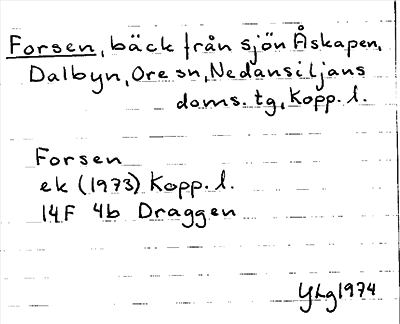 Forsen, bäck från sjön Åskapen,
Dalbyn, Ore sn, Nedansiljans
doms. tg, Kopp. l.
Forsen
ek (1973) Kopp. l.
14F 4b Draggen
YLg 1974